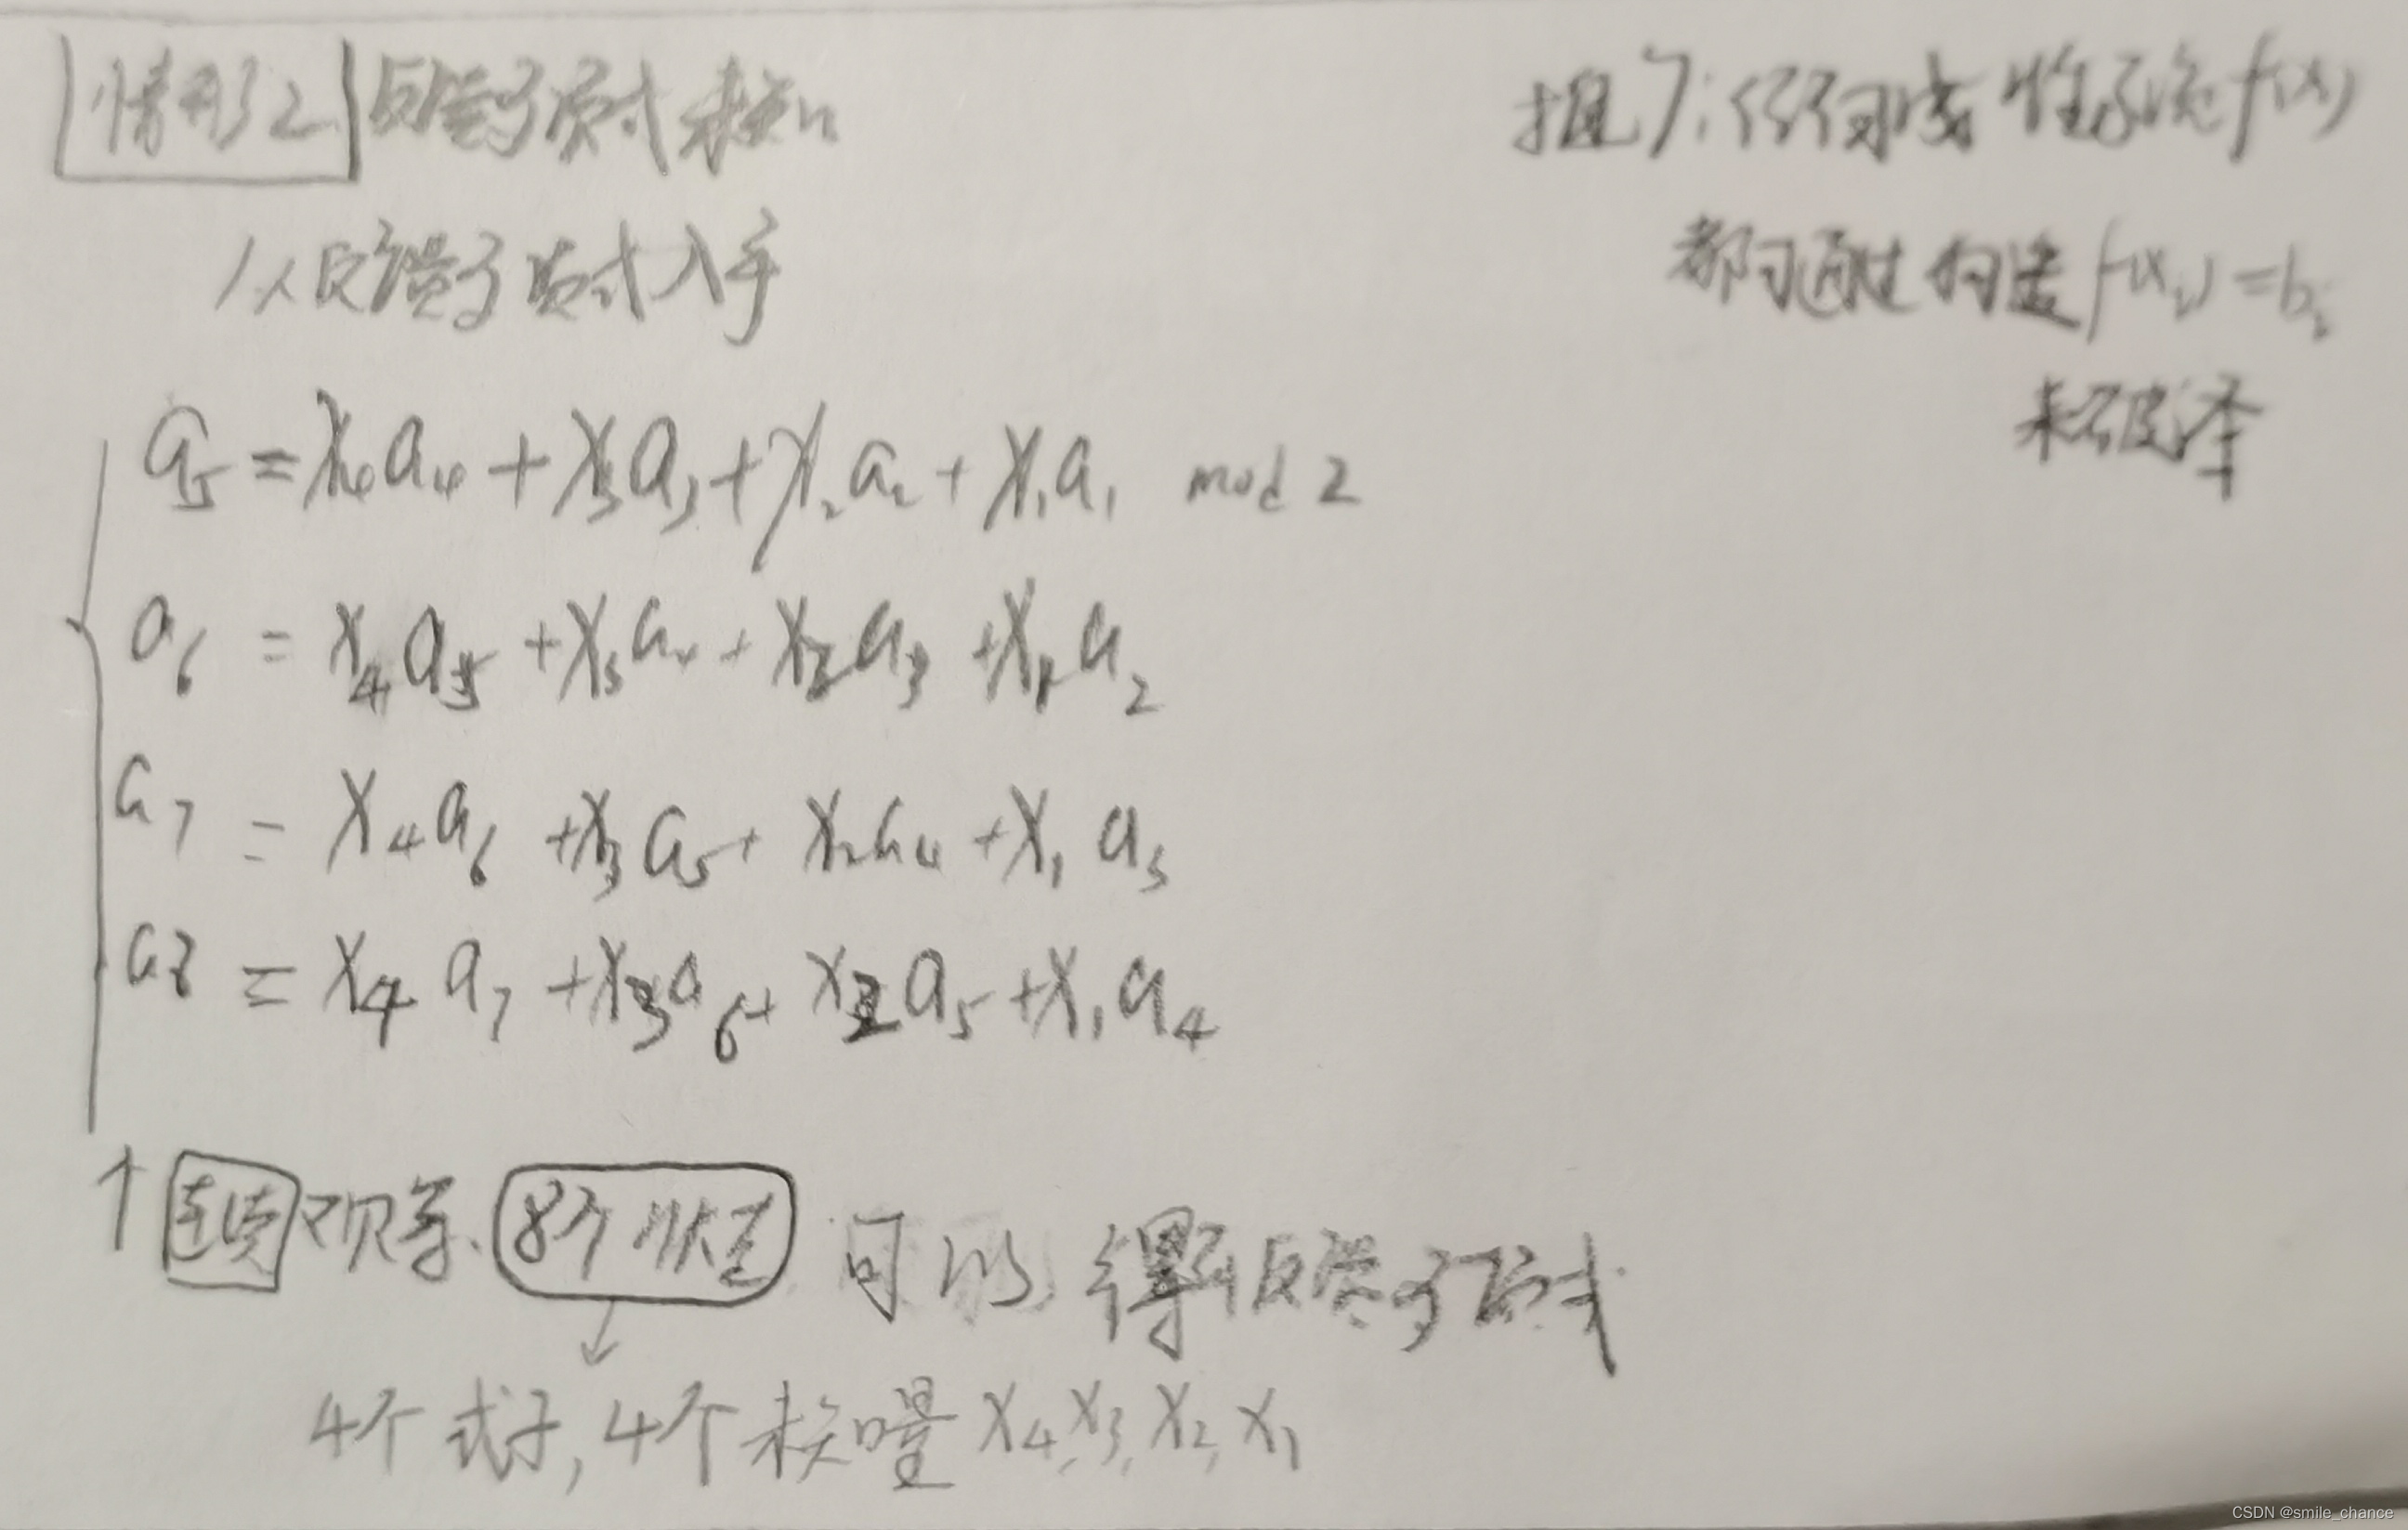 情形2 反馈多项式未知
从反馈多项式入手
a₅ = x₄a₄ + x₃a₃ + x₂a₂ + x₁a₁ mod 2
a₆ = x₄a₅ + x₃a₄ + x₂a₃ + x₁a₂
a₇ = x₄a₆ + x₃a₅ + x₂a₄ + x₁a₃
a₈ = x₄a₇ + x₃a₆ + x₂a₅ + x₁a₄
↑ 连续观察 8个状态 可以 得到反馈多项式
↓
4个式子, 4个未知量 x₄, x₃, x₂, x₁
推广: 任何线性系统 f(x)
都可通过构造 f(xᵢ) = bᵢ
来破译
CSDN @smile_chance